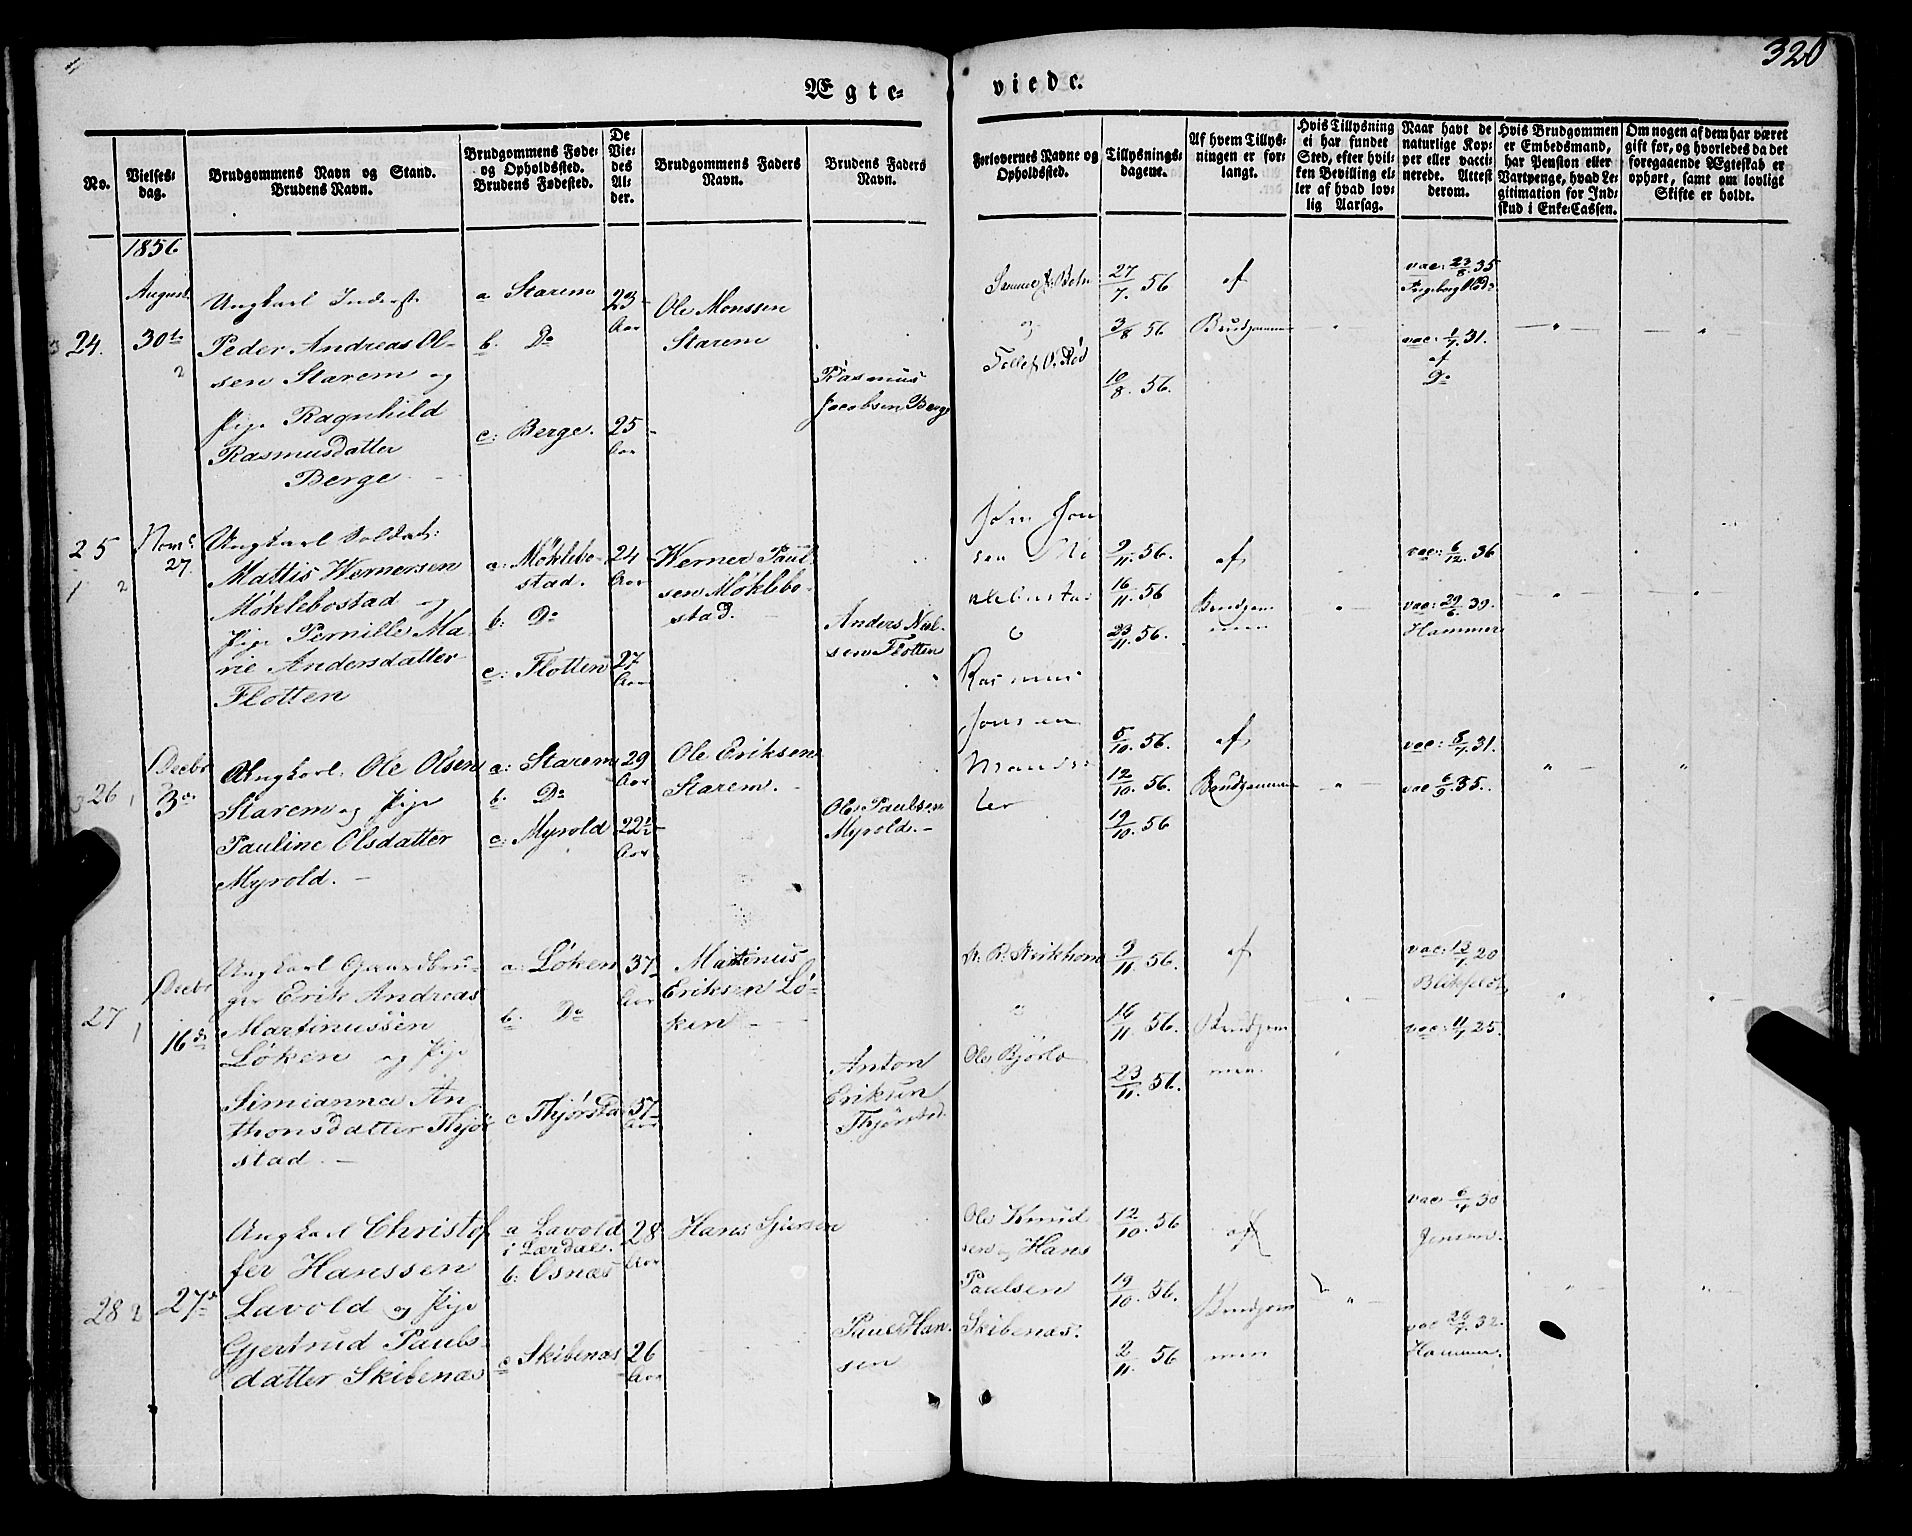 320
Ægte-
viede.
No.
Vielses-
dag.
Brudgommens Navn og Stand.
Brudens Navn.
Brudgommens Føde-
og Opholdssted.
Brudens Fødested.
De
Vie-
des
Al-
der.
Brudgommens Faders
Navn.
Brudens Faders
Navn.
Forlovernes Navne og
Opholdssted.
Tillysnings-
dagene.
Af hvem Tillys-
ningen er for-
langt.
Hvis Tillysning
ei har fundet
Sted, efter hvil-
ken Bevilling el-
ler af hvad lov-
lig Aarsag.
Naar havt de
naturlige Kop-
per eller vacci-
nerede. Attest
derom.
Hvis Brudgommen
er Embedsmand,
har Pension eller
Vartpenge, hvad Le-
gitimation for Ind-
skud i Enke-Cassen.
Om nogen af dem har været
gift før, og hvorledes da det
foregaaende Ægteskab er
ophørt, samt om lovligt
Skifte er holdt.
1856
August
24.
30te
2
Ungkarl Inderst
Peder Andreas Ol-
sen Starem og
Pige Ragnhild
Rasmusdatter
Berge.
a Starem
b. Do
c: Berge.
23
Aar
25
Aar
Ole Monssen
Starem
Rasmus
Jacobsen Berge
og
27/7. 56
3/8 56
10/8 56.
af
Brudgommen
vac: 23/8. 35
vac: 1/7. 31.
af
Do
25
1
2
Novr
27.
Ungkarl Soldat:
Mattis Wernersen
Møklebostad og
Pige Pernille Ma-
rie Andersdatter
Flotten
a: Møklebo-
stad.
b: Do
c: Flotten
24
Aar
27
Aar
Werner Paul-
sen Møklebo-
stad.
Anders Niel-
sen Flotten
John Jon
sen Mø
klebustad
o
Rasmus
Jonsen
9/11. 56.
16/11. 56
23/11. 56.
af
Brudgom-
men
vac: 6/12. 36
vac: 29/6. 30.
Hammer
26
Decbr
3de
Ungkarl: Ole Olsen
Starem og Pige
Pauline Olsdatter
Myrold.
a: Starem
b. Do
c: Myrold
29
Aar
22½
Aar
Ole Eriksen
Starem.
Ole Paulsen
Myrold.
5/10. 56.
12/10. 56.
19/10. 56
af
Brudgommen
vac: 8/7. 31.
vac 6/9. 35.
27
1
Decbr
16de
Ungkarl Gaardbru-
ger Erik Andreas
Martinussen
Løken og Pige
Simianna An-
thonsdatter Thjør-
stad.
a: Løken
b. Do
c Thjørstad
37
Aar
57
Aar
Martinus
Eriksen Lø-
ken
Anton
Eriksen
Thjørstad
Ole Bjørlo
9/11. 56.
16/11. 56.
23/11. 56.
af
Brudgom-
men.
vac: 13/1. 20
vac: 11/7. 25.
28
2
27de
Ungkarl Christof-
fer Hanssen
Lavold og Pige
Gjertrud Pauls-
datter Skibenæs
a Lavold
i Lærdal.
b: Osnæs
c Skibenæs
28
Aar
26
Aar
Hans Sjursen
Paul Han-
sen
Ole Knud
sen og Hans
Paulsen
Skibenæs.
12/10. 56
19/10. 56.
2/11. 56
af
Brudgom
men
vac: 6/7. 30
Jensen.
vac 26/7. 32.
Hammer.